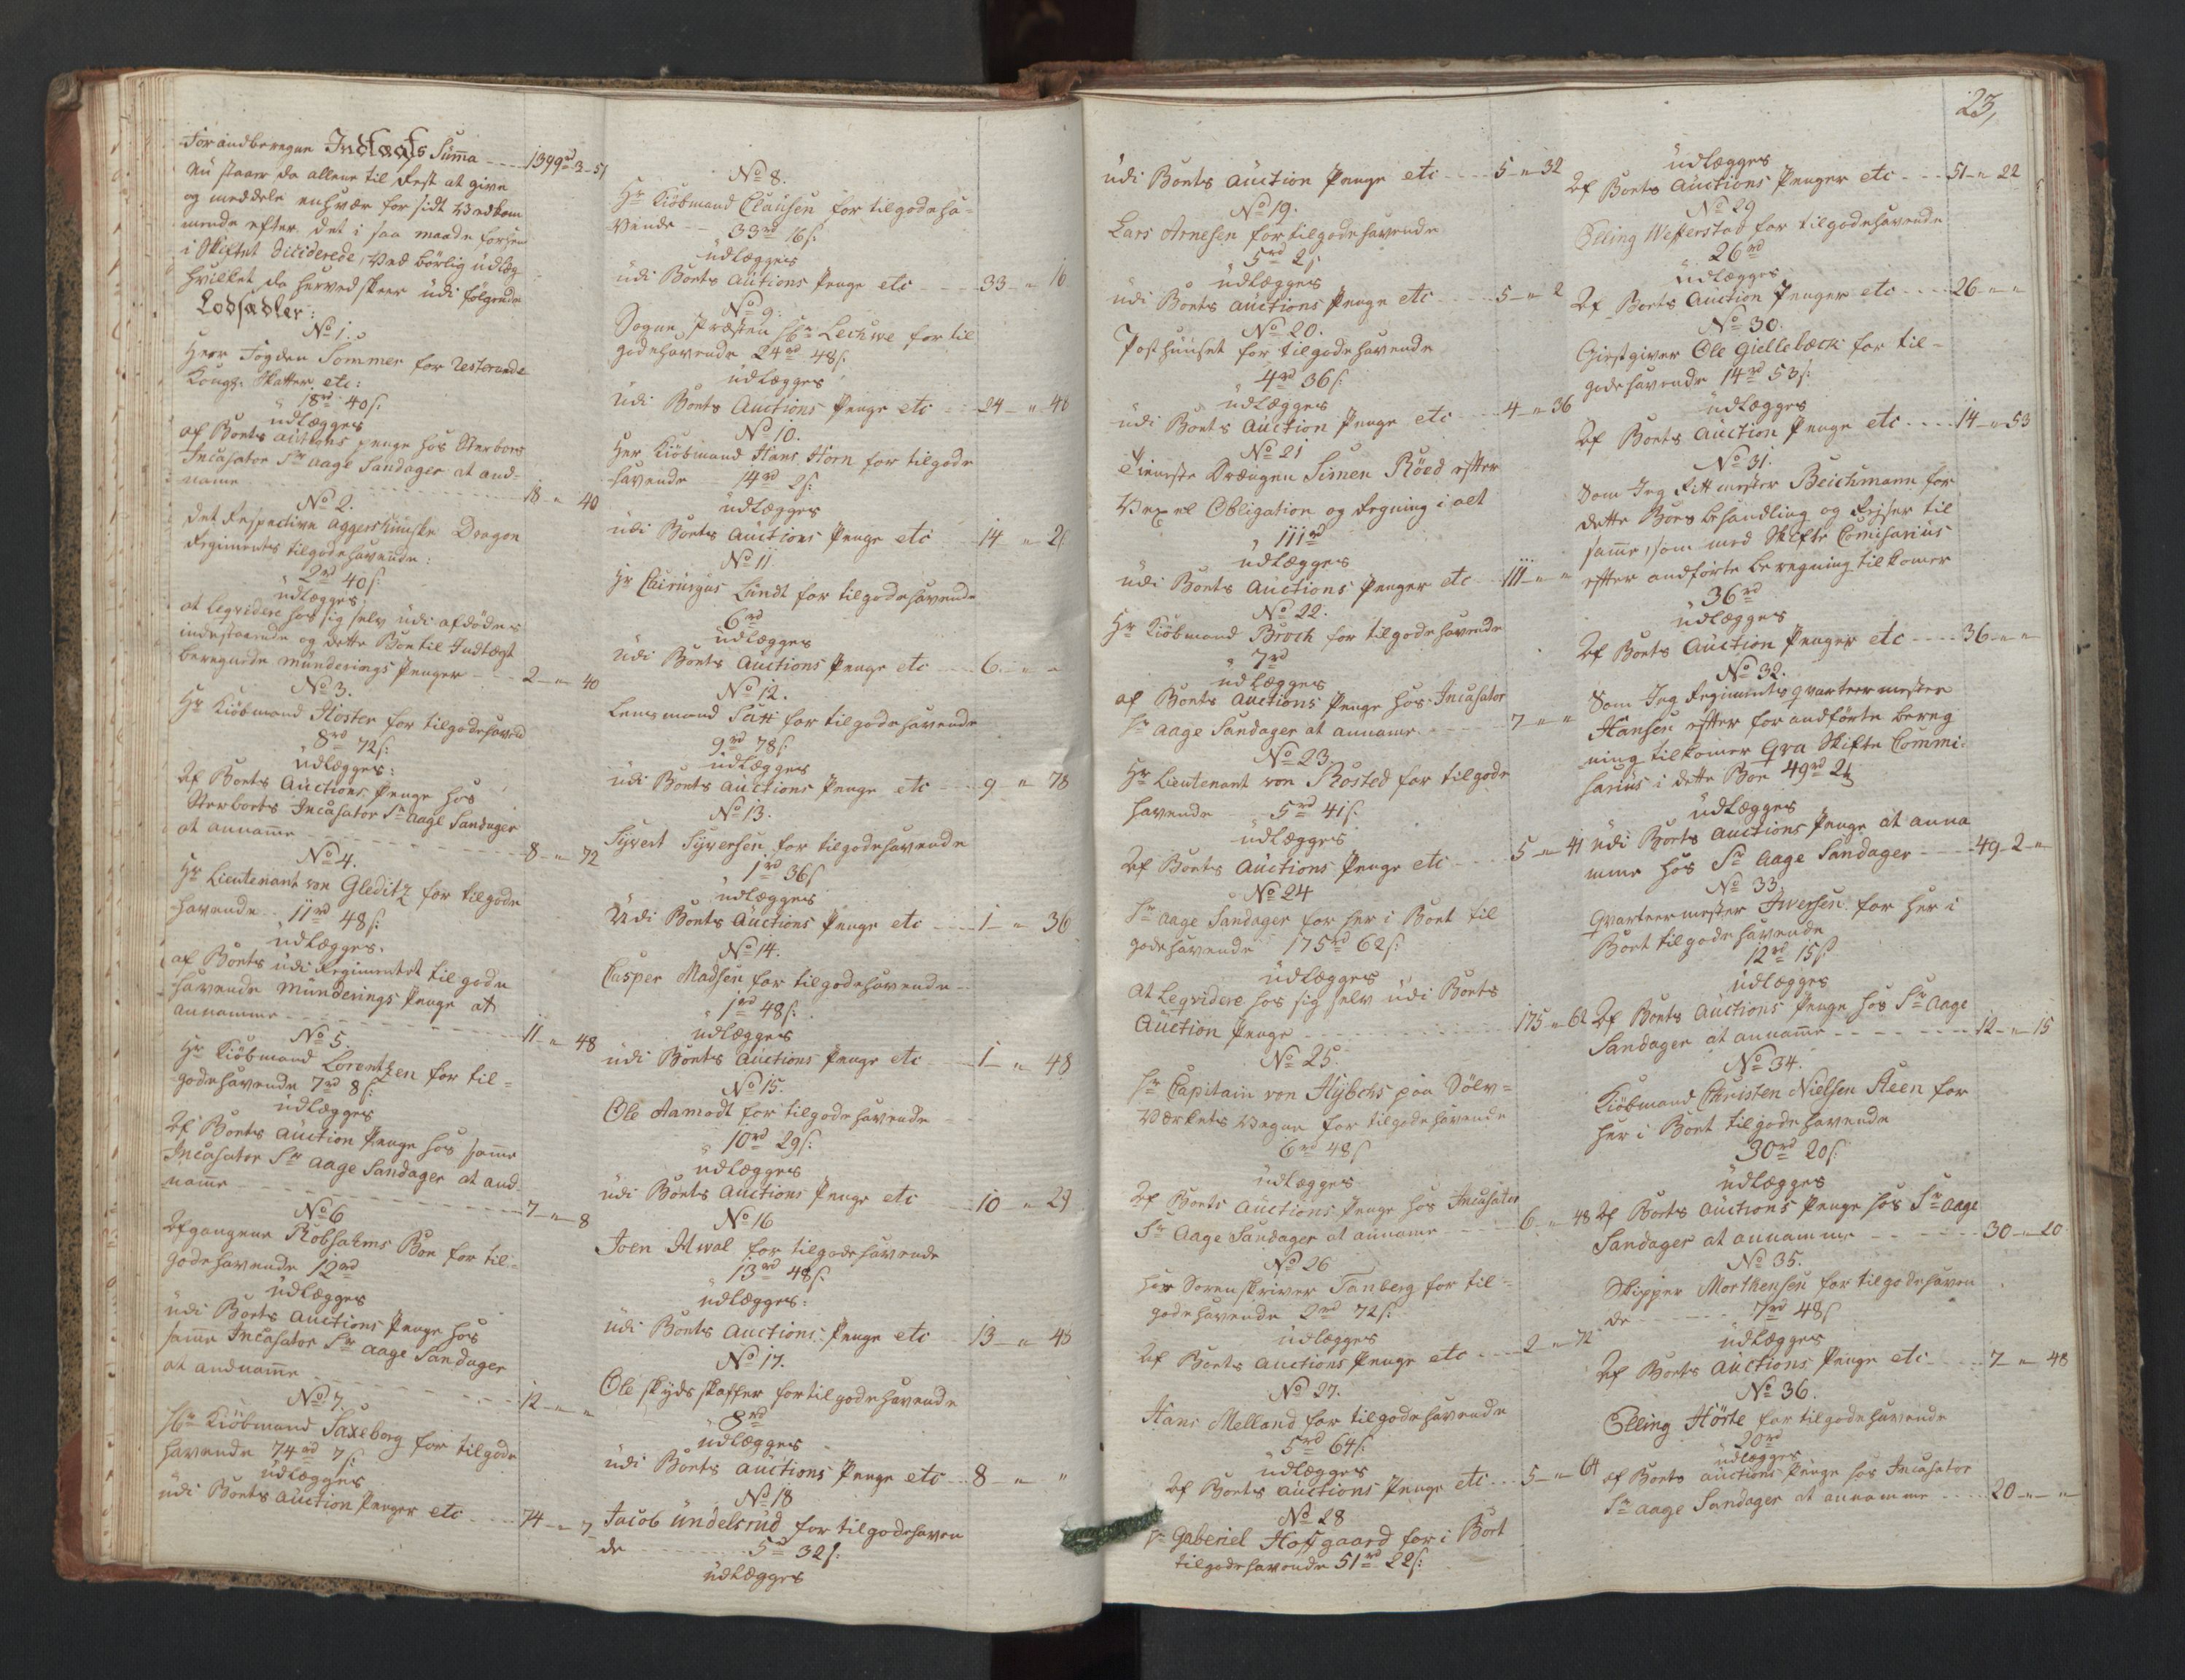 Forandberegne Indtægts Suma ---- 1399rd 3 - 51
Nu staaer da allene til Rest at give
og meddele enhver for sidt Vedkom
mende efter det i saa maade forhen
i Skiftet Deciderede, Ved börlig udlæg
hvilket da herved skeer udi følgende
Lodsedler:
No 1.
Herr Fogden Sommer for Resterende
Kongs: Skatter etc:
" 18rd 40s:
udlægges
af Boets auctions penge hos Sterboens
Incasator Sr Aage Sandager at and-
name ---- 18 - " 40
No 2.
Det Respective Aggershuuske Dragon
Regiments tilgodehavende:
" 2rd 40s:
udlægges,
at Leqvidere hos sig selv udi afdödes
indestaaende og dette Boe til Indtægt
beregnede Munderings Penger --- 2 - " 40
No 3.
Hr Kiöbmand Floster for tilgodehavend
" 8rd 72s:
udlægges:
Af Boets Auctions Penge hos
Sterboets Incasator Sr Aage Sandager
at anname ---- 8 - " 72
No 4.
Hr Lieutenant von Gleditz for tilgode
havende 11rd 48s:
udlægges.
af Boets udi Regimentet tilgode
havende Munderings Penge at
annamme ---- 11 - " 48
No 5.
Hr Kiöbmand Lorentzen for til-
godehavende 7rd 8s:
udlægges
Af Boets Auction Penge hos same
Incasator Sr Aage Sandager at and-
name ---- 7 - " 8
No 6
Afgangene Robsahms Boe for til-
godehavende 12rd
udlægges
udi Boets Auctions Penge hos
same Incasator Sr Aage Sandager
at andname ---- 12 - " "
No 7.
Hr Kiöbmand Saxeborg for tilgode
havende 74rd 7s:
udlægges
udi Boets Auction Penger etc ---- 74 - " 7
No 8.
Hr Kiöbmand Clausen for tilgodeha-
vende -- 33rd 16s:
udlægges
udi Boets Autions Penge etc ---- 33 - " 16
No 9:
Sogne Præsten Hr Lechwe for til
godehavende 24rd 48s:
udlægges
Udi Boets Auctions Penge etc -- 24 - " 48
No 10.
Her Kiöbmand Hans Horn for tilgode
havende -- 14rd 2s:
udlægges
udi Boets Auctions Penge etc -- 14 - " 2s
No 11
Hr Chirurgus Lundt for tilgodehavende
6rd
udlægges
Udi Boets Auctions Penge etc ---- 6 - " "
No 12.
Lensmand Sætt for tilgodehavende
9rd 78s:
udlægges
udi Boets Auctions Penge etc ---- 9 " 78
No 13.
Syvert Syversen for tilgodehavende
" 1rd 36s
udlægges
Udi Boets Auctions Penge etc ---- 1 - " 36
No 14.
Casper Madsen for tilgodehavende --
" 1rd 48s:
udlægges
udi Boets Auctions Penge etc ---- 1 - " 48
No 15.
Ole Aamodt for tilgodehavende
" 10rd 29s:
udlægges
udi Boets Auctions Penge etc ---- 10 - " 29
No 16
Joen Hwal for tilgodehavende
" 13rd 48s:
udlægges:
udi Boets Auctions Penge etc -- 13 - " 48
No 17.
Ole skydsskaffer for tilgodehavende
" 8rd
udlægges
udi Boets Auctions Penge etc -- 8 - " "
No 18
Jacob Undelsrud for tilgodehaven
de ---- 5rd 32s:
udlægges
23,
udi Boets Auction Penge etc ---- 5 - " 32
No 19.
Lars Arnesen for tilgodehavende
5rd 2s
udlægges
udi Boets Auctions Penge etc ---- 5 - " 2
No 20.
Posthuuset for tilgodehavende
" 4rd 36s:
udlægges
udi Boets Auction Penge etc ---- 4 - " 36
No 21
Tieneste Drængen Simen Röed efter
Vexel Obligation og Regning i alt
" 111rd
udlægges
udi Boets Auctions Penger etc -- 111 - " "
No 22.
Hr Kiöbmand Broch for tilgodehavende
" 7rd
udlægges
af Boets Auctions Penge hos Incasator
Sr Aage Sandager at anname ---- 7 - " "
No 23
Hr Lieutenant von Rosted for tilgode
havende -- 5rd 41s:
udlægges
Af Boets Auctions Penge etc ---- 5 - " 41
No 24
Sr Aage Sandager for her i Boet til
godehavende 175rd 62s:
udlægges
at Leqvidere hos sig selv udi Boets
Auction Penge ---- 175 - " 62
No 25.
Hr Capitain von Hybchs paa Sölv-
Værkets Vegne for tilgodehavende
6rd 48s
udlægges
Af Boets Auctions Penge hos Incasator
Sr Aage Sandager at anname ---- 6 - " 48
No 26
Her Sorenskriver Tanberg for til-
godehavende 2rd 72s:
udlægges
Af Boets Auctions Penge etc ---- 2 - " 72
No 27.
Hans Melland for tilgodehavende
" 5rd 64s:
udlægges
Af Boets Auctions Penge etc ---- 5 - " 64
No 28
Sr Gaberiel Hoffgaard for i Boet
tilgodehavende 51rd 22s:
udlægges
Af Boets Auctions Penger etc ---- 51 - " 22
No 29
Elling Westerstad for tilgodehavende
26rd
udlægges
Af Boets Auction Penger etc ---- 26 - " "
No 30.
Giestgiver Ole Giellebæck for til-
godehavende 14rd 53s:
udlægges
Af Boets Auction Penge etc ---- 14 - " 53
No 31.
Som Jeg Rittmester Beichmann for
dette Boes behandling og Reiser til
samme, som med Skifte Comisarius
efter andförte beregning tilkomer
" 36rd
udlægges
Af Boets Auction Penger etc ---- 36 - " "
No 32.
Som Jeg Regiments qvarteermester
Hansen efter forandførte bereg
ning tilkomer Qva Skifte Commi-
sarius i dette Boe 49rd 2
udlægges
udi Boets Auctions Penge at anna
mme hos Sr Aage Sandager ---- 49 - 2 - "
No 33
Qvarteermester Iversen for her i
Boet tilgodehavende
12rd 15s
udlægges
Af Boets Auctions Penge hos Sr Aage
Sandager at anname ---- 12 - " 15
No 34.
Kiöbmand Christen Nielsen Steen for
her i Boet tilgodehavende
30rd 20s:
udlægges
Af Boets Auctions Penge hos Sr Aage
Sandager at annamme ---- 30 - " 20
No 35.
Skipper Morthensen for tilgodehaven
de ---- 7rd 48s
udlægges
Af Boets Auctions Penge etc ---- 7 - " 48
No 36.
Elling Hörte for tilgodehavende
20rd
udlægges
af Boets Auctions Penge hos Incasator
Sr Aage Sandager at annamme ---- 20 - " "